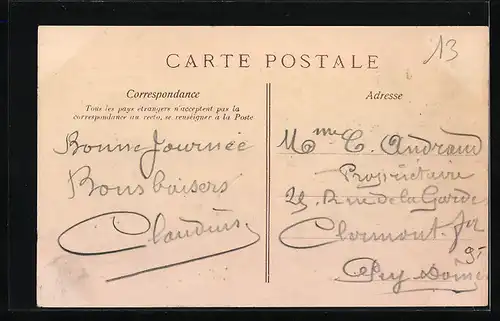 CARTE POSTALE
13
Correspondance
Tous les pays étrangers n'acceptent pas la
correspondance au recto, se renseigner à la Poste
Bonne Journée
Bons baisers
Claudius
Adresse
Mme C. Andraud
Propriétaire
25 Rue de la Garde
Clermont-fd
Puy Dôme